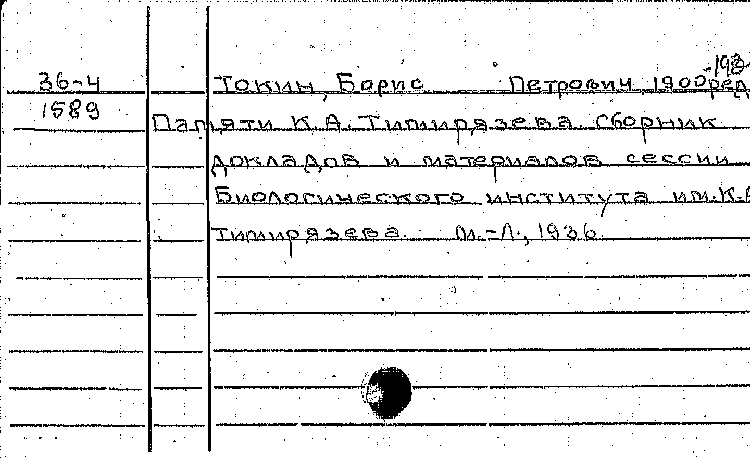 36-4 Токин, Борис Петрович 1900- ред.
1589 Памяти К.А. Тимирязева. Сборник
докладов и материалов сессии
Биологического института им. К.А.
Тимирязева. М.-Л., 1936